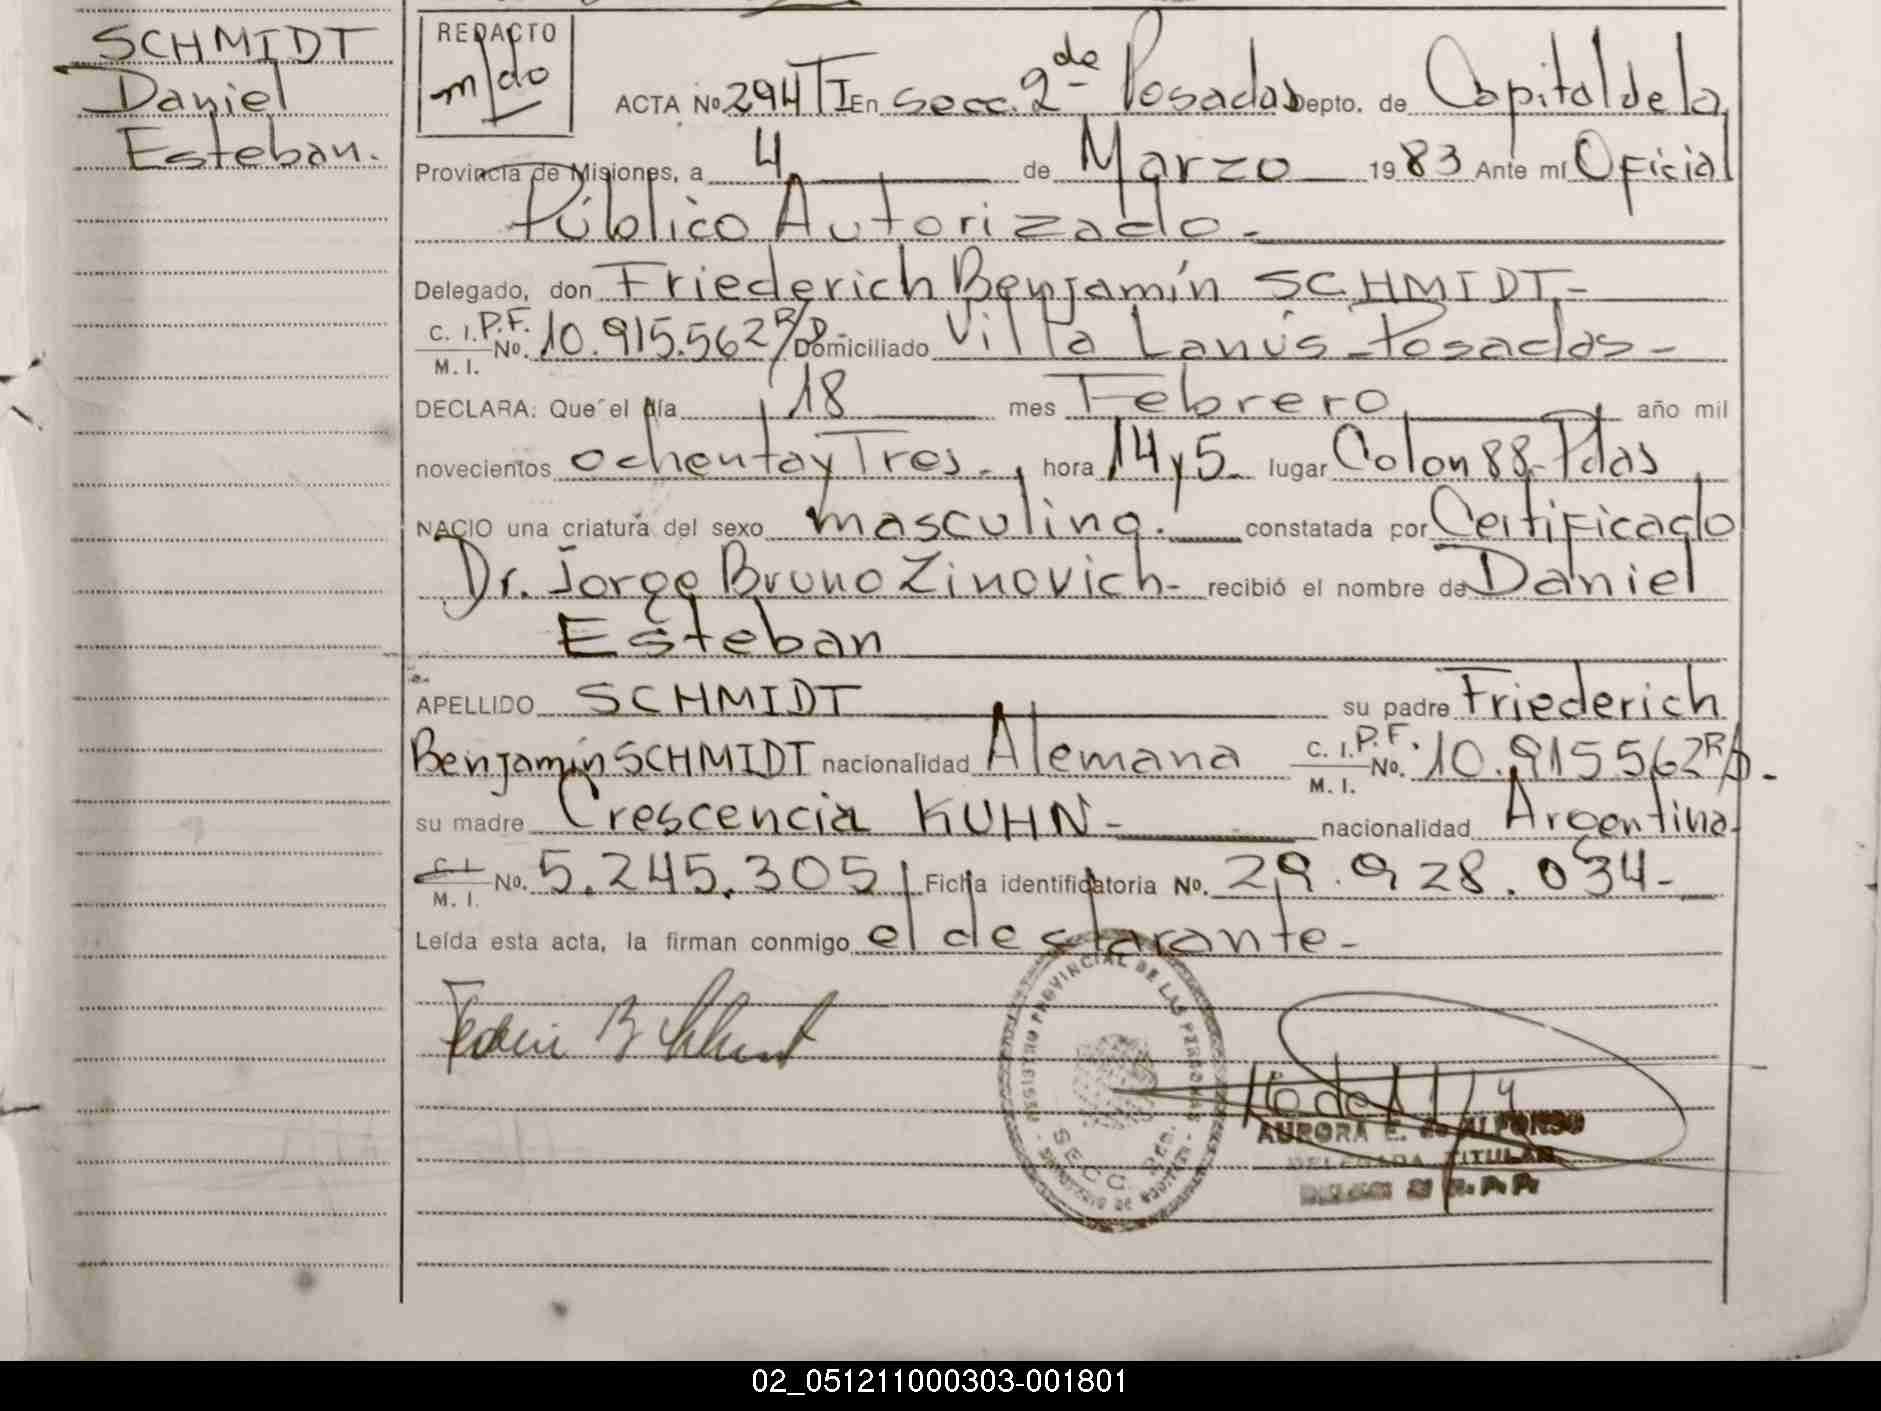 SCHMIDT
Daniel
Esteban.
REDACTO
m/do
ACTA No 294 TI En Secc. 2 de Posadas Depto. de Capital de la
Provincia de Misiones, a 4 de Marzo 1983 Ante mí Oficial
Público Autorizado.-
Delegado, don Friederich Benjamín SCHMIDT.-
C. I. P.F. No. 10.915.562 Domiciliado Villa Lanús - Posadas -
M. I.
DECLARA: Que el día 18 mes Febrero año mil
novecientos ochenta y Tres.- hora 14 y 5 lugar Colon 88- Pdas
NACIO una criatura del sexo masculino. constatada por Certificado
Dr. Jorge Bruno Zinovich- recibió el nombre de Daniel
Esteban
APELLIDO SCHMIDT su padre Friederich
Benjamín SCHMIDT nacionalidad Alemana C. I. P.F. No. 10.915562
M. I.
su madre Crescencia KUHN- nacionalidad Argentina
C. I. No. 5.245.305 Ficha identificatoria No. 29.928.034-
M. I.
Leída esta acta, la firman conmigo el declarante-
REGISTRO PROVINCIAL DE LAS PERSONAS
SECC.
AURORA E. de ALFONSO
DELEGADA TITULAR
R. P. P.
02_051211000303-001801